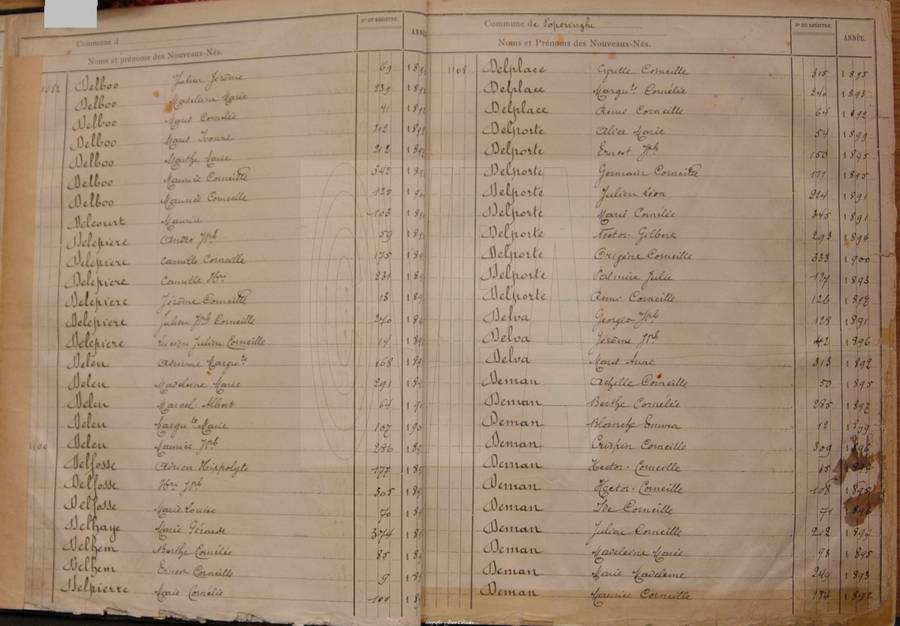 Commune d
Noms et prénoms des Nouveaux-Nés.
N° DU REGISTRE
Delboo Julien Jérôme 69
Delboo Madeleine Marie 239
Delboo Marie Cornélie 41
Delboo Marie Yvonne 202
Delboo Marthe Marie 212
Delboo Maurice Corneille 342
Delboo Maurice Corneille 125
Delcourt Maurice 103
Delepiere André Jph 59
Delepiere Camille Corneille 175
Delepiere Camille Hri 231
Delepiere Jérôme Corneille 13
Delepiere Julien Jph Corneille 270
Delepiere Lucien Julien Corneille 14
Deleu Adrienne Margte 168
Deleu Madeleine Marie 291
Deleu Marcel Albert 64
Deleu Margte Marie 107
Deleu Maurice Jph 286
Delfosse Adrien Hippolyte 177
Delfosse Hri Jph 305
Delfosse Marie Louise 70
Delhaye Marie Gérarde 374
Delhem Berthe Cornélie 85
Delhem Ernest Corneille 9
Delpierre Marie Cornélie 104
Commune de Poperinghe
Noms et Prénoms des Nouveaux-Nés.
N° DU REGISTRE. ANNÉE.
Delplace Cyrille Corneille 315 1895
Delplace Margte Cornélie 240 1893
Delplace Remi Corneille 64 1892
Delporte Alice Marie 54 1899
Delporte Ernest Jph 150 1895
Delporte Germain Corneille 171 1895
Delporte Julien Léon 224 1891
Delporte Marie Cornélie 345 1891
Delporte Nestor Gilbert 293 1894
Delporte Origène Corneille 333 1900
Delporte Palmire Julie 197 1893
Delporte Remi Corneille 126 1892
Delva Georges Jph 128 1891
Delva Jérôme Jph 42 1896
Delva Marie Anne 313 1892
Deman Achille Corneille 50 1895
Deman Berthe Cornélie 285 1897
Deman Blanche Emma 12 1899
Deman Crispin Corneille 309
Deman Hector Corneille 15
Deman Hector Corneille 108 1895
Deman Corneille 71
Deman Julien Corneille 212 1897
Deman Madeleine Marie 98 1895
Deman Marie Madeleine 249 1893
Deman Maurice Corneille 134 1892